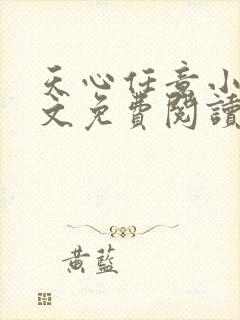 天心任意小
文免費閱讀
黃藍